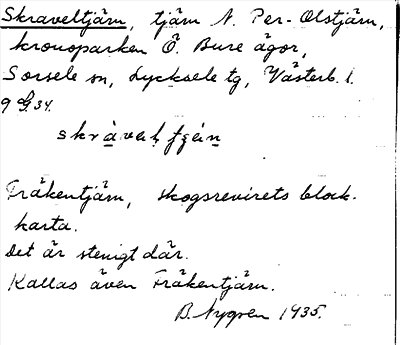 Skraveltjärn, tjärn N. Per-Olstjärn,
kronoparken Ö. Bure ägor,
Sorsele sn, Lycksele tg, Västerb. l.
9 G 34.
skràvel
Fräkentjärn, skogsrevirets block-
karta.
Det är stenigt där.
Kallas även Fräkentjärn.
B. Nygren 1935.